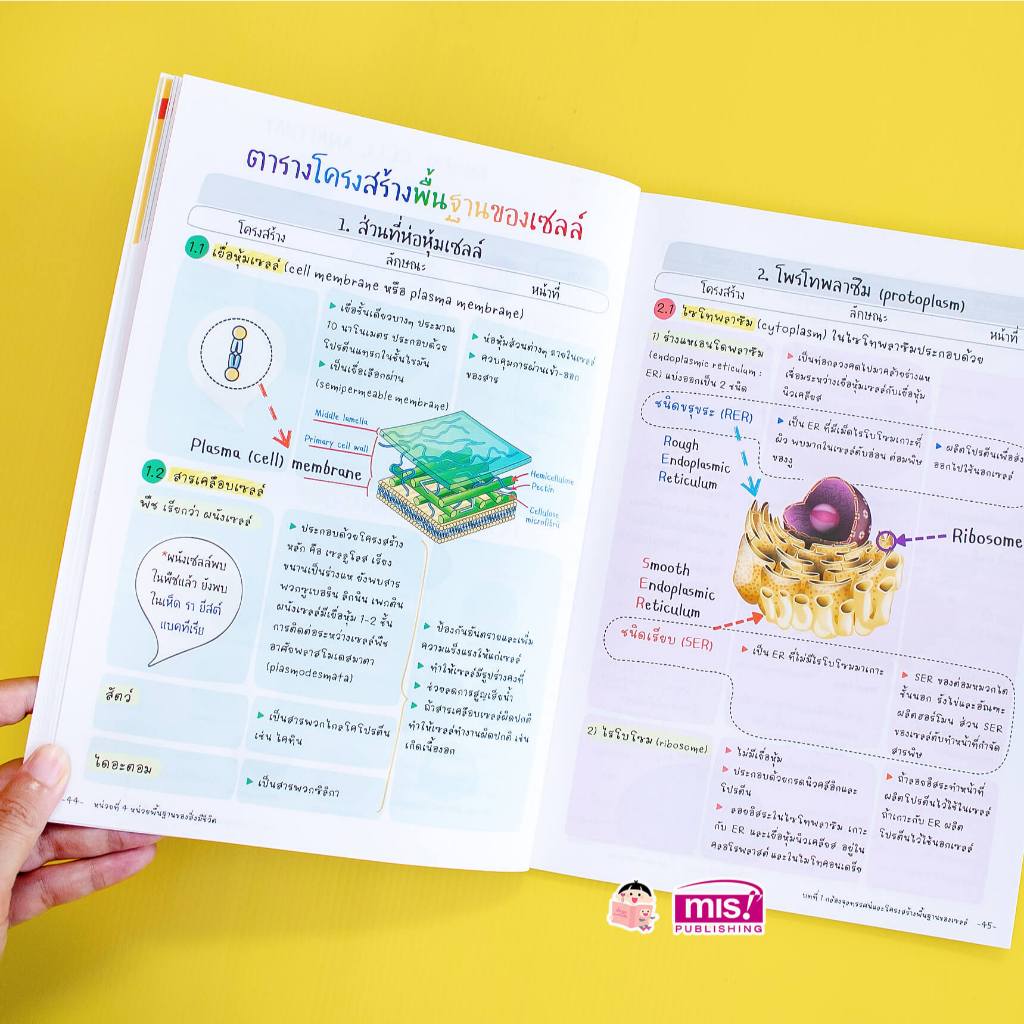 ตารางโครงสร้างพื้นฐานของเซลล์
1. ส่วนที่ห่อหุ้มเซลล์
โครงสร้าง
ลักษณะ
หน้าที่
1.1 เยื่อหุ้มเซลล์ (cell membrane หรือ plasma membrane)
▶ เยื่อชั้นเดียวบางๆ ประมาณ
10 นาโนเมตร ประกอบด้วย
โปรตีนแทรกในชั้นไขมัน
▶ เป็นเยื่อเลือกผ่าน
(semipermeable membrane)
▶ ห่อหุ้มส่วนต่างๆ ภายในเซลล์
▶ ควบคุมการผ่านเข้า-ออก
ของสาร
Plasma (cell) membrane
Middle lamella
Primary cell wall
Hemicellulose
Pectin
Cellulose
microfibril
1.2 สารเคลือบเซลล์
พืช เรียกว่า ผนังเซลล์
*ผนังเซลล์พบ
ในพืชแล้ว ยังพบ
ในเห็ด รา ยีสต์
แบคทีเรีย
▶ ประกอบด้วยโครงสร้าง
หลัก คือ เซลลูโลส เรียง
ขนานเป็นร่างแห ยังพบสาร
พวกซูเบอริน ลิกนิน เพกติน
ผนังเซลล์มีเยื่อหุ้ม 1-2 ชั้น
การติดต่อระหว่างเซลล์พืช
อาศัยพลาสโมเดสมาตา
(plasmodesmata)
▶ ป้องกันอันตรายและเพิ่ม
ความแข็งแรงให้แก่เซลล์
▶ ทำให้เซลล์มีรูปร่างคงที่
▶ ช่วยลดการสูญเสียน้ำ
▶ ถ้าสารเคลือบเซลล์ผิดปกติ
ทำให้เซลล์ทำงานผิดปกติ เช่น
เกิดเนื้องอก
สัตว์
▶ เป็นสารพวกไกลโคโปรตีน
เช่น ไคทิน
ไดอะตอม
▶ เป็นสารพวกซิลิกา
-44- หน่วยที่ 4 หน่วยพื้นฐานของสิ่งมีชีวิต
2. โพรโทพลาซึม (protoplasm)
โครงสร้าง
ลักษณะ
หน้าที่
2.1 ไซโทพลาซึม (cytoplasm) ในไซโทพลาซึมประกอบด้วย
1) ร่างแหเอนโดพลาซึม
(endoplasmic reticulum :
ER) แบ่งออกเป็น 2 ชนิด
▶ เป็นท่อกลวงคดไปมาคล้ายร่างแห
เชื่อมระหว่างเยื่อหุ้มเซลล์กับเยื่อหุ้ม
นิวเคลียส
ชนิดขรุขระ (RER)
▶ เป็น ER ที่มีเม็ดไรโบโซมเกาะที่
ผิว พบมากในเซลล์ตับอ่อน ต่อมพิษ
ของงู
▶ ผลิตโปรตีนเพื่อส่ง
ออกไปใช้นอกเซลล์
Rough
Endoplasmic
Reticulum
Ribosome
Smooth
Endoplasmic
Reticulum
ชนิดเรียบ (SER)
▶ เป็น ER ที่ไม่มีไรโบโซมมาเกาะ
▶ SER ของต่อมหมวกไต
ชั้นนอก รังไข่และอัณฑะ
ผลิตฮอร์โมน ส่วน SER
ของเซลล์ตับทำหน้าที่กำจัด
สารพิษ
2) ไรโบโซม (ribosome)
▶ ไม่มีเยื่อหุ้ม
▶ ประกอบด้วยกรดนิวคลีอิกและ
โปรตีน
▶ ลอยอิสระในไซโทพลาซึม เกาะ
กับ ER และเยื่อหุ้มนิวเคลียส อยู่ใน
คลอโรพลาสต์ และในไมโทคอนเดรีย
▶ ถ้าลอยอิสระทำหน้าที่
ผลิตโปรตีนไว้ใช้ในเซลล์
ถ้าเกาะกับ ER ผลิต
โปรตีนไว้ใช้นอกเซลล์
บทที่ 1 กล้องจุลทรรศน์และโครงสร้างพื้นฐานของเซลล์ -45-
mis!
PUBLISHING